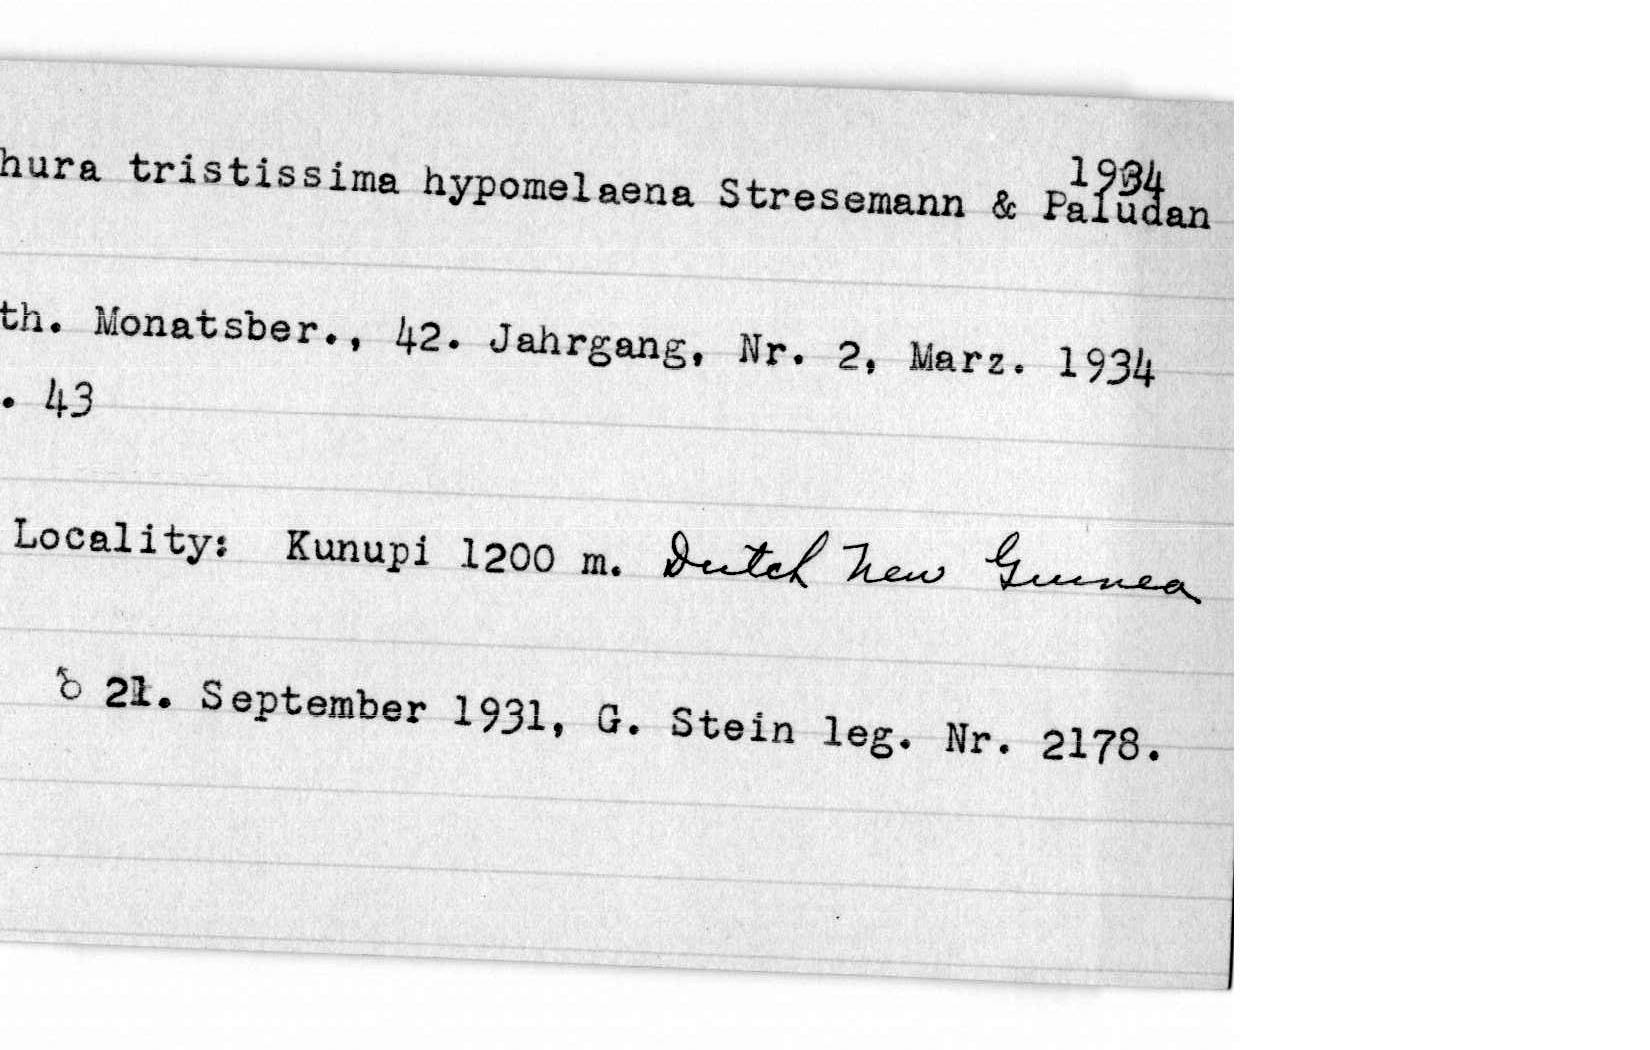 hura tristissima hypomelaena Stresemann & Paludan 1934
th. Monatsber., 42. Jahrgang, Nr. 2, Marz. 1934
. 43
Locality: Kunupi 1200 m. Dutch New Guinea
♂ 21. September 1931, G. Stein leg. Nr. 2178.